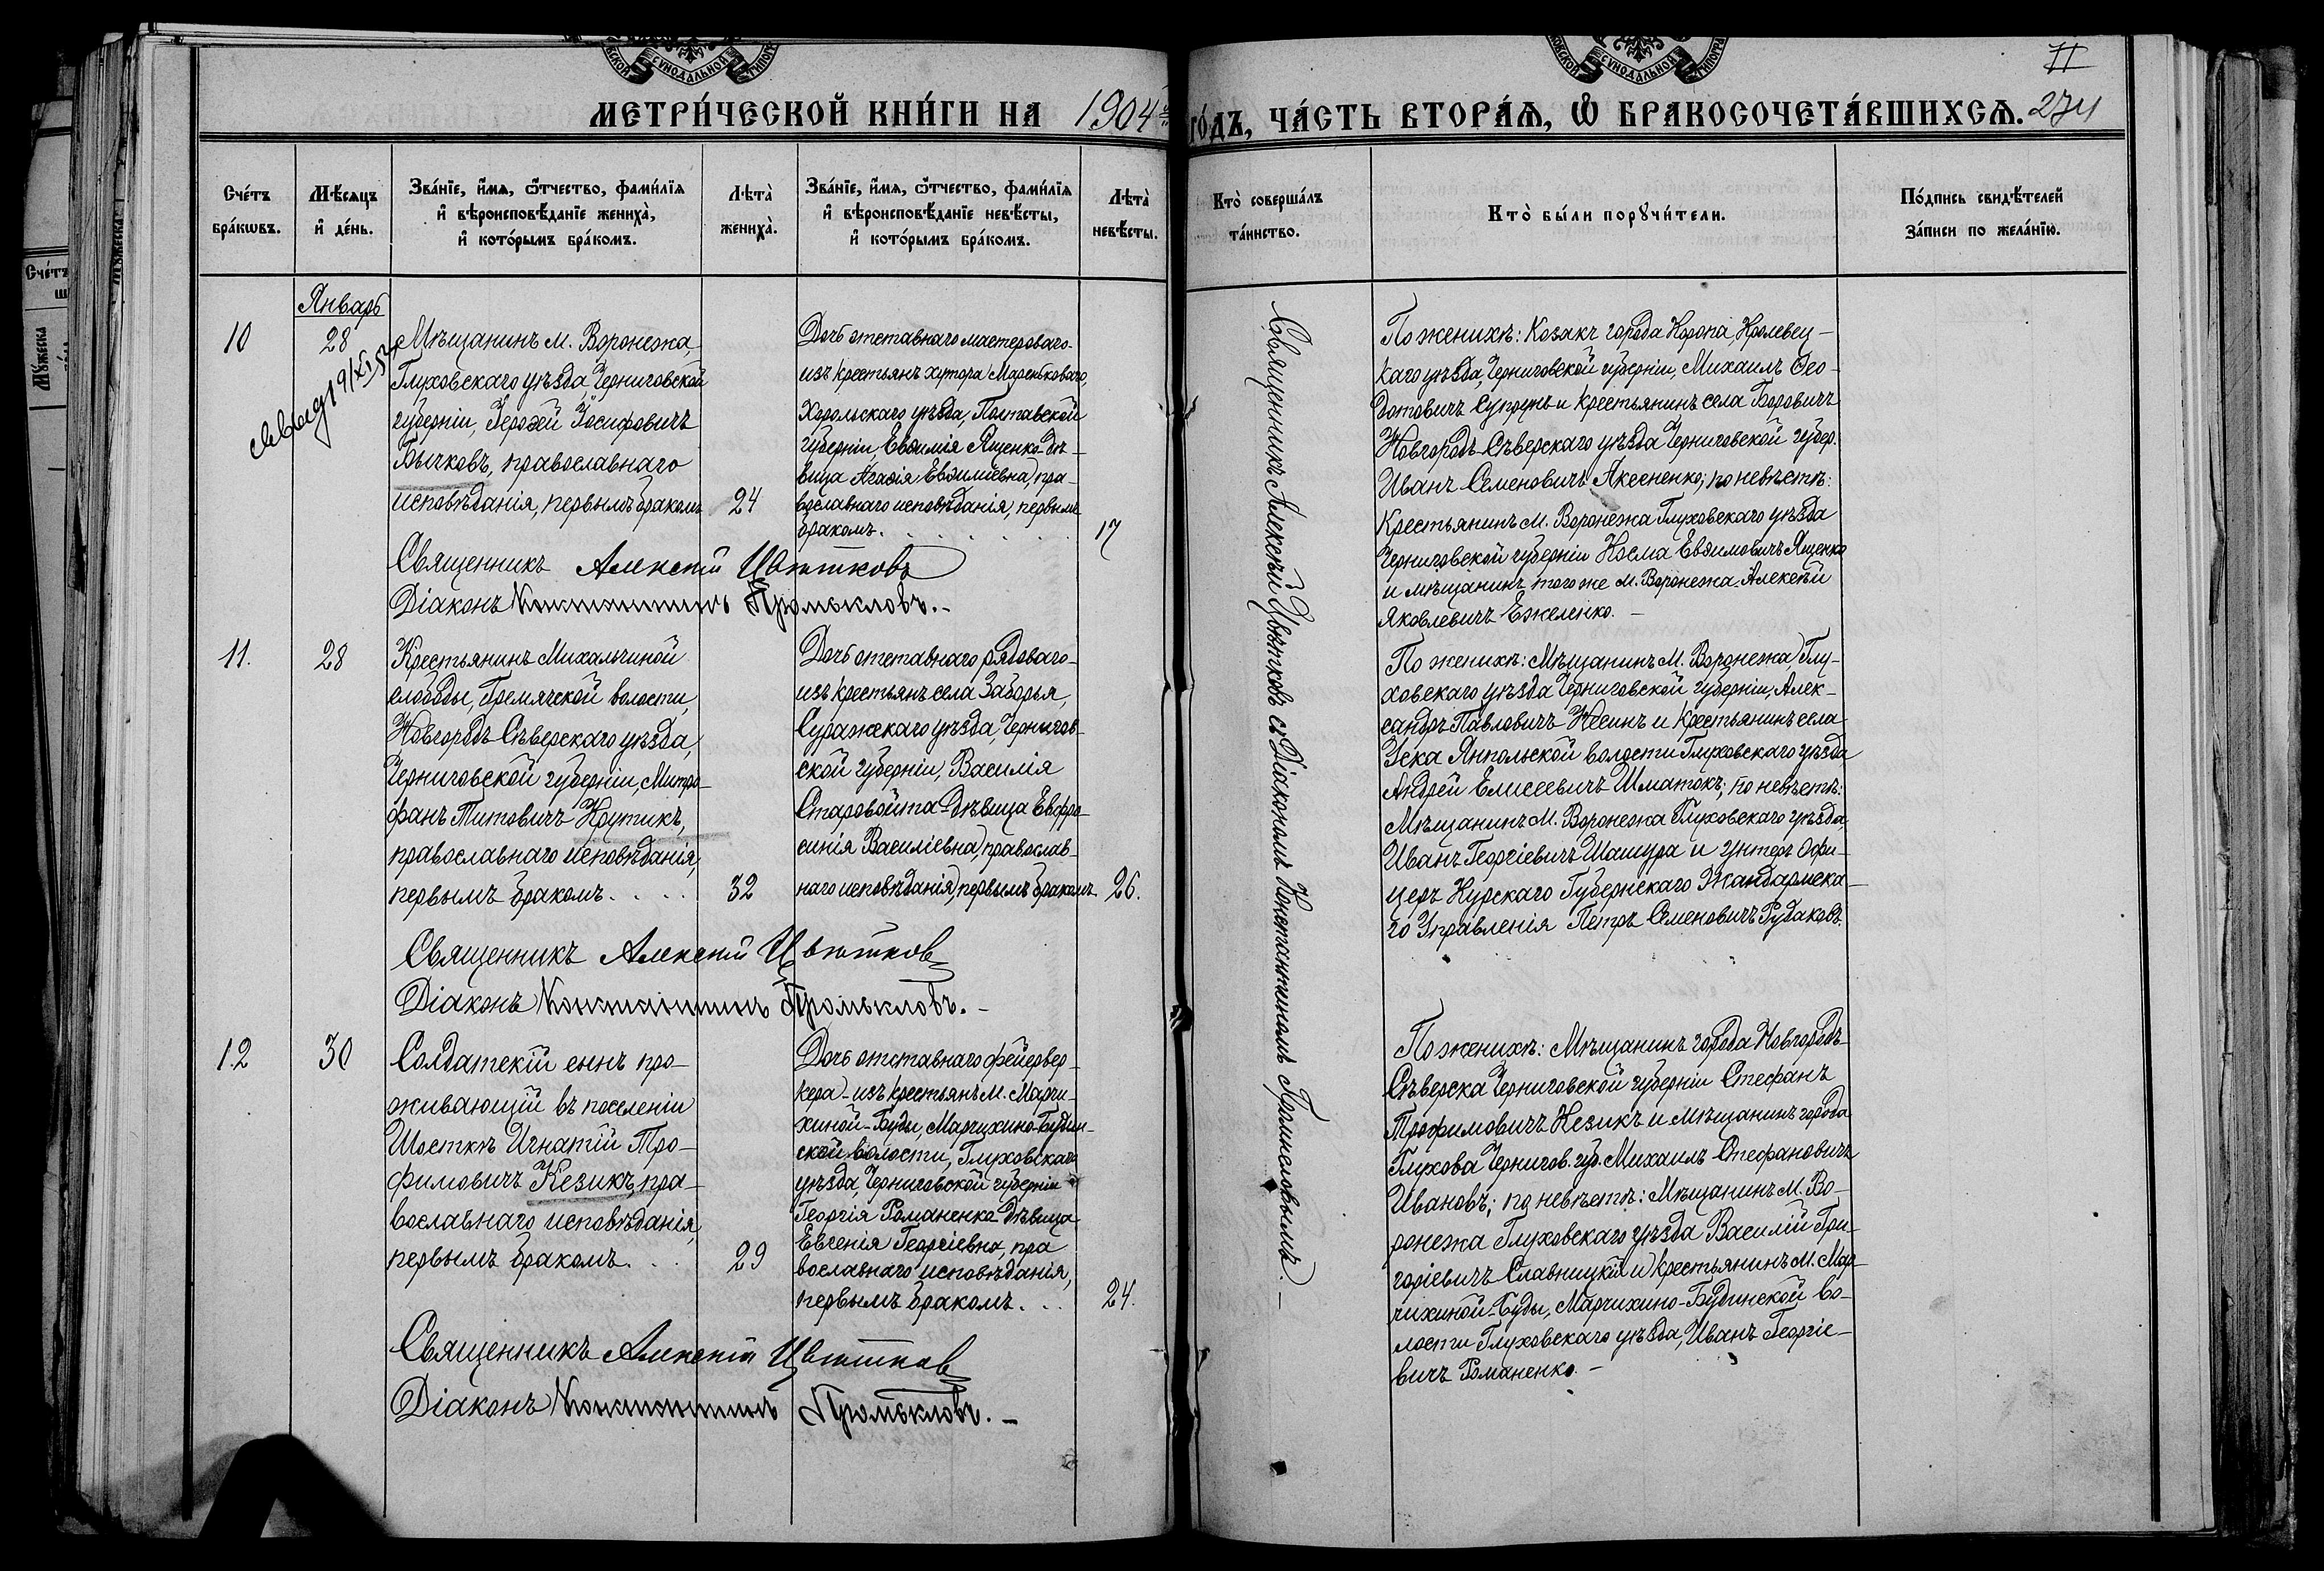 МЕТРИ́ЧЕСКОЙ КНИ́ГИ НА 1904й
ГО́ДЪ, ЧА́СТЬ ВТОРА́Я, Ѿ БРАКОСОЧЕТА́ВШИХСЯ.
274
Сче́тъ бра́кωвъ.
Мѣ́сяцъ и҆ де́нь.
Зва́нїе, и҆́мя, ѻ҆́тчество, фами́лїя и҆ вѣроисповѣ́данїе жениха̀, и҆ кото́рымъ бра́комъ.
Лѣта̀ жениха̀.
Зва́нїе, и҆́мя, ѻ҆́тчество, фами́лїя и҆ вѣроисповѣ́данїе невѣ́сты, и҆ кото́рымъ бра́комъ.
Лѣта̀ невѣ́сты.
Кто̀ соверша́лъ та́инство.
Кто̀ бы́ли порꙋчи́тели.
По́дпись свидѣ́телей за́писи по жела́нїю.
Январь
10
28
Мѣщанинъ м. Воронежа,
Глуховскаго уѣзда, Черниговской
губерніи, Іерофей Іосифовичъ
Бычковъ, православнаго
исповѣданія, первымъ бракомъ
24
Дочь отставнаго мастероваго
изъ крестьянъ хутора Мареньковаго,
Хорольскаго уѣзда, Полтавской
губерніи, Евѳимія Ященко дѣ-
вица Агаѳія Евѳиміевна, пра-
вославнаго исповѣданія, первымъ
бракомъ.
17
Священникъ Алексій Цвѣтковъ
Діаконъ Константинъ Промокловъ.
По женихѣ: Козакъ города Коропа, Кролевец-
каго уѣзда, Черниговской губерніи, Михаилъ Ѳео-
дотовичъ Супрунъ и крестьянинъ села Боровичъ
Новгородъ-Сѣверскаго уѣзда Черниговской губер.
Иванъ Семеновичъ Аксененко; по невѣстѣ:
Крестьянинъ м. Воронежа Глуховскаго уѣзда
Черниговской губерніи Косма Евѳимовичъ Ященко
и мѣщанинъ того же м. Воронежа Алексѣй
Яковлевичъ Ежеленко.
11.
28
Крестьянинъ Михальчиной
слободы, Гремячской волости,
Новгородъ Сѣверскаго уѣзда,
Черниговской губерніи, Митро-
фанъ Титовичъ Крутикъ,
православнаго исповѣданія,
первымъ бракомъ
32
Дочь отставнаго рядоваго
изъ крестьянъ села Заборья,
Суражскаго уѣзда, Чернигов-
ской губерніи, Василія
Старовойта дѣвица Евфро-
синія Василіевна, православ-
наго исповѣданія, первымъ бракомъ
26.
Священникъ Алексій Цвѣтковъ
Діаконъ Константинъ Промокловъ.
По женихѣ: Мѣщанинъ М. Воронежа, Глу-
ховскаго уѣзда Черниговской губерніи, Алек-
сандръ Павловичъ Жеинъ и крестьянинъ села
Уска Янпольской волости Глуховскаго уѣзда
Андрей Елисеевичъ Шматокъ; по невѣстѣ:
Мѣщанинъ М. Воронежа Глуховскаго уѣзда,
Иванъ Георгіевичъ Шашура и унтеръ Офи-
церъ Курскаго Губернскаго Жандармска-
го Управленія Петръ Семеновичъ Рудаковъ.
12
30
Солдатскій сынъ про-
живающій въ поселеніи
Шосткѣ Игнатій Тро-
фимовичъ Кезикъ, пра-
вославнаго исповѣданія,
первымъ бракомъ.
29
Дочь отставнаго фейервер-
кера изъ крестьянъ М. Марчи-
хиной-Буды, Марчихино-Будин-
ской волости, Глуховскаго
уѣзда, Черниговской губерніи
Георгія Романенко дѣвица
Евгенія Георгіевна, пра
вославнаго исповѣданія,
первымъ бракомъ.
24.
Священникъ Алексій Цвѣтковъ
Діаконъ Константинъ Промокловъ.
По женихѣ: Мѣщанинъ города Новгородъ-
Сѣверска Черниговской губерніи Стефанъ
Трофимовичъ Кезикъ и мѣщанинъ города
Глухова Чернигов. губ. Михаилъ Стефановичъ
Ивановъ; по невѣстѣ: Мѣщанинъ М. Во-
ронежа Глуховскаго уѣзда Василій Гри-
горіевичъ Славницкій и крестьянинъ М. Мар-
чихиной-Буды, Марчихино-Будинской во-
лости Глуховскаго уѣзда, Иванъ Георгіе-
вичъ Романенко.
Священникъ Алексѣй Цвѣтковъ съ Діакономъ Константиномъ Промокловымъ.